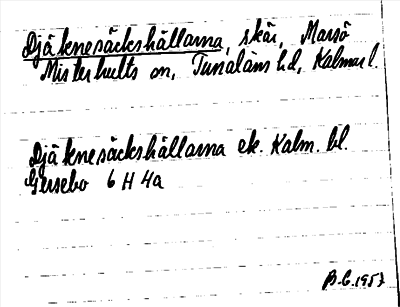 Djäknesäckshällarna, skär, Marsö
Misterhults sn, Tunaläns hd, Kalmar l.
Djäknesäckshällarna ek. Kalm. bl.
Gersebo 6 H 4a
B.E. 1957